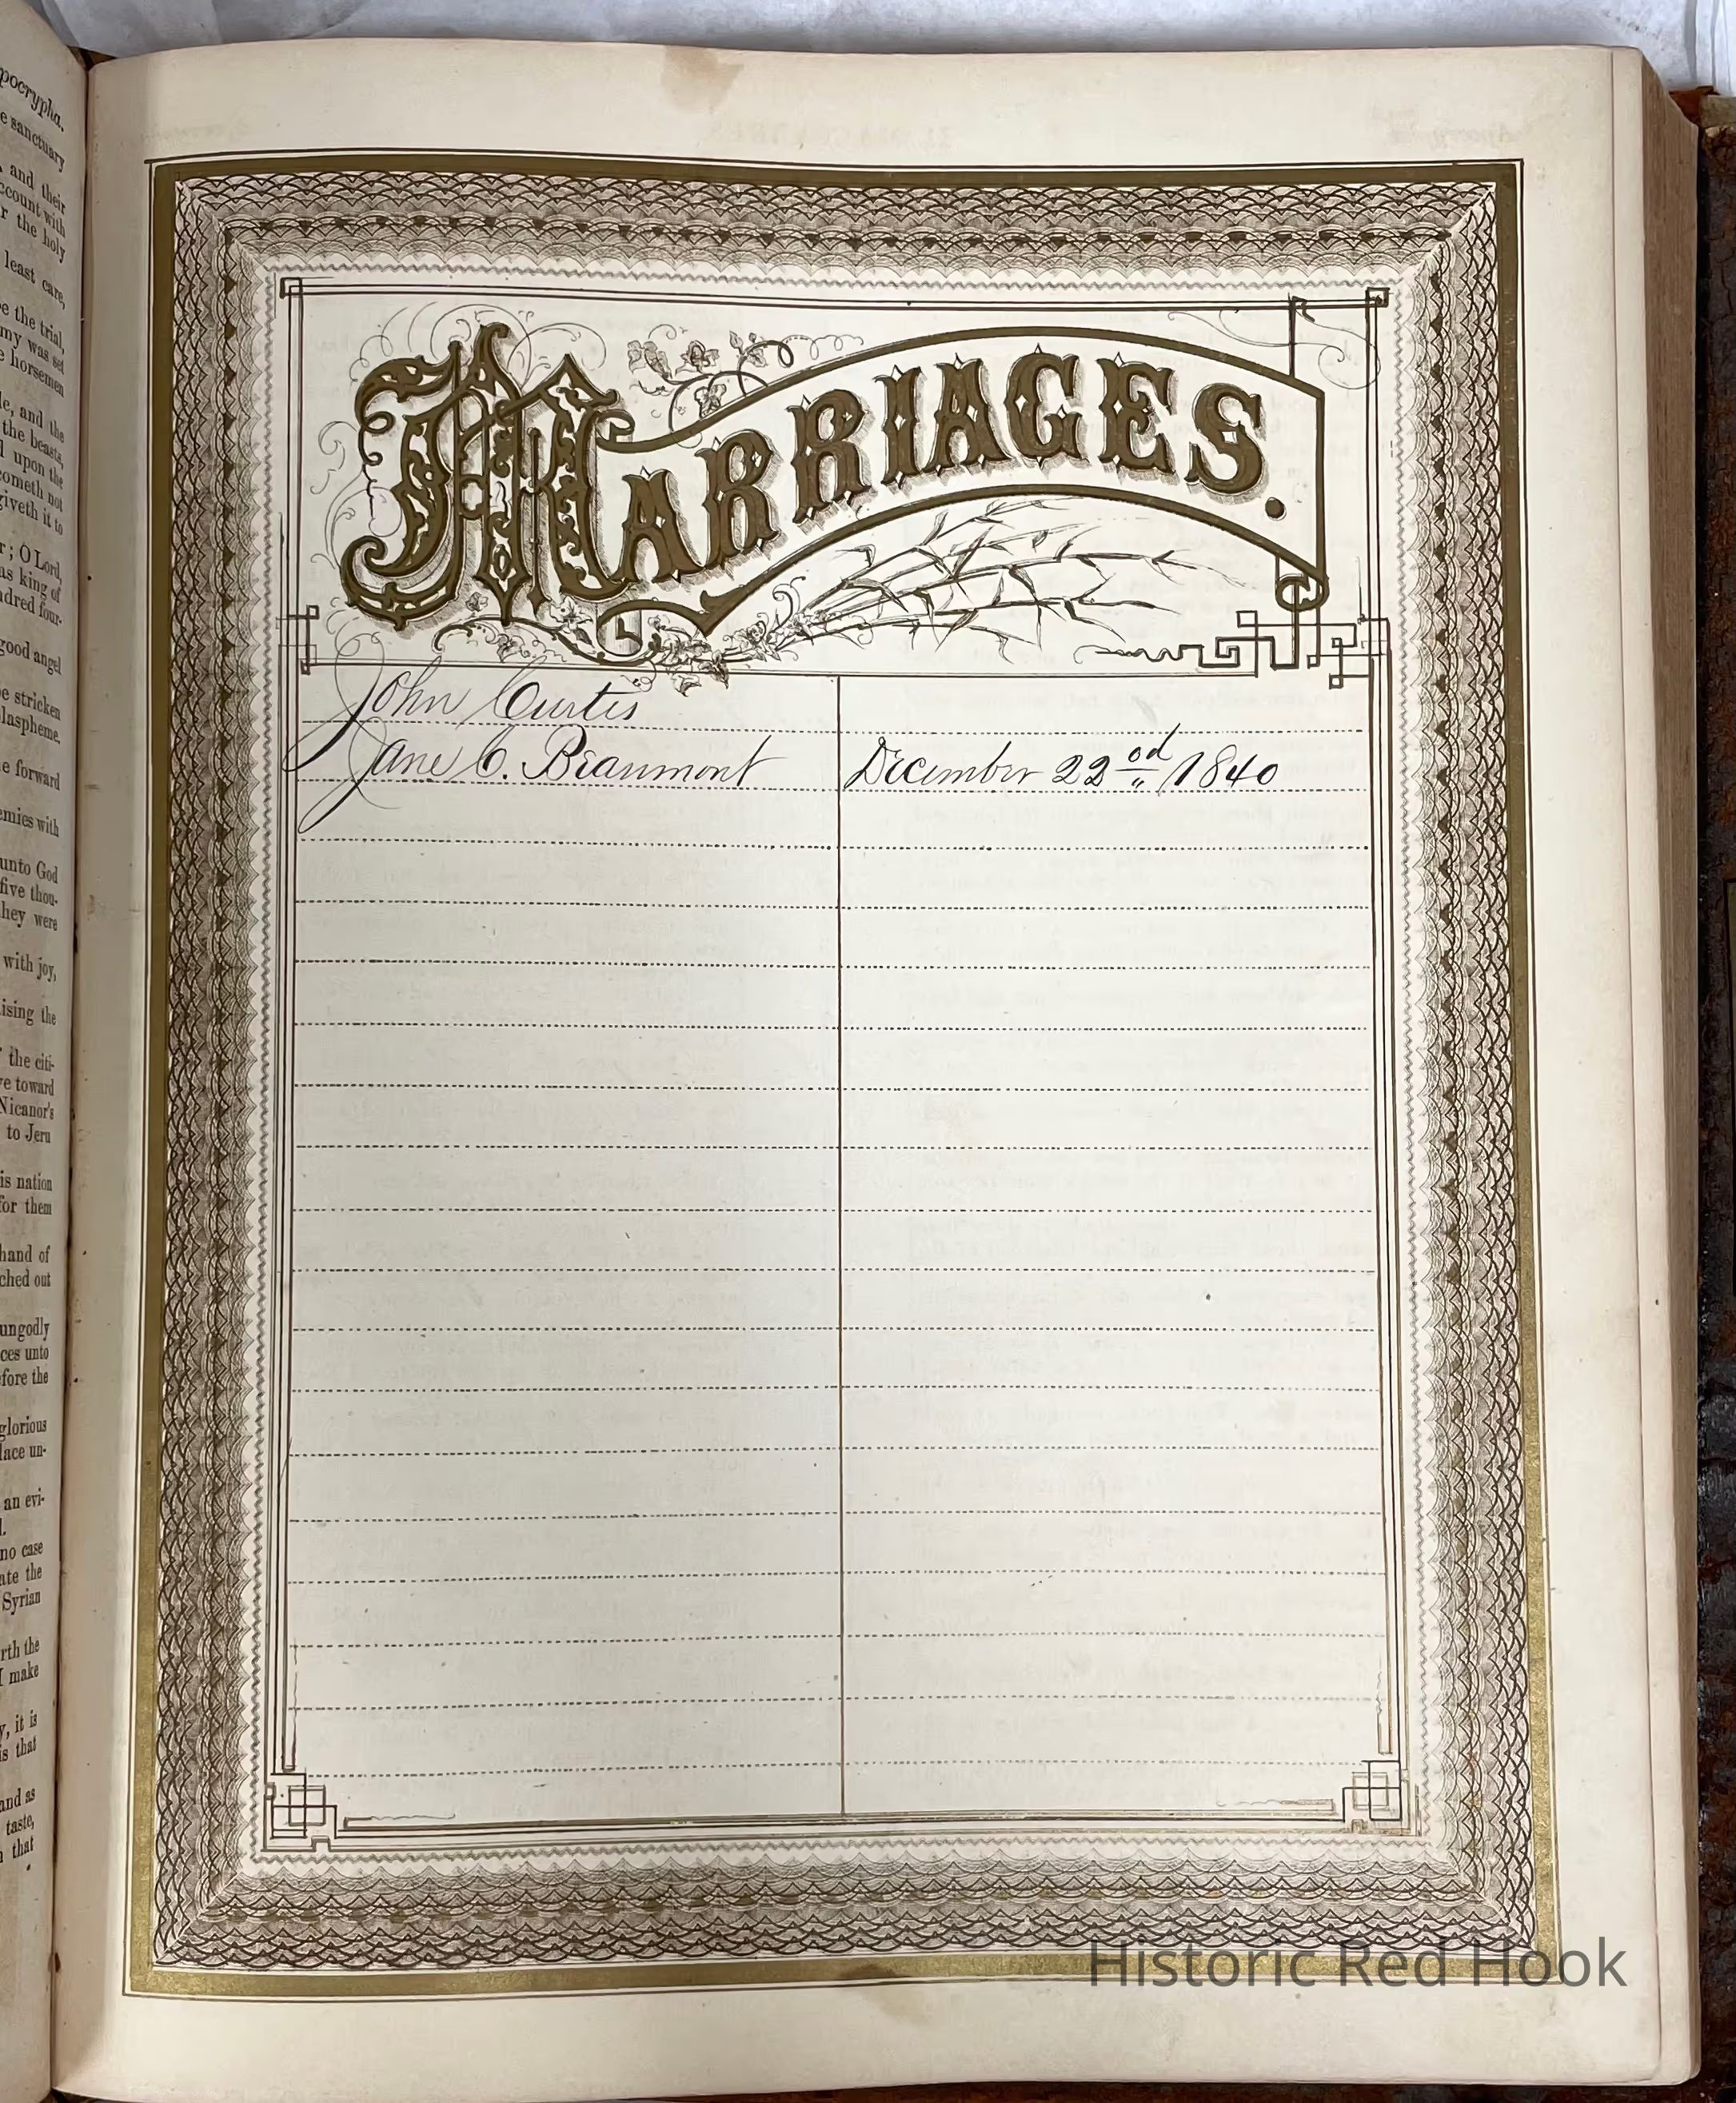 pocrypha.
e sanctuary
, and their
ccount with
r the holy
least care,
be the trial,
my was set
e horsemen
le, and the
the beasts,
d upon the
cometh not
giveth it to
r; O Lord,
as king of
ndred four-
good angel
be stricken
blaspheme.
e forward
emies with
unto God
five thou-
they were
with joy,
ising the
the citi-
ve toward
Nicanor's
to Jeru
is nation
for them
hand of
ched out
ungodly
ces unto
efore the
glorious
lace un-
an evi-
l.
no case
ate the
Syrian
rth the
I make
y, it is
is that
and as
taste,
n that
MARRIAGES.
John Curtis
Jane C. Beaumont December 22nd, 1840
Historic Red Hook